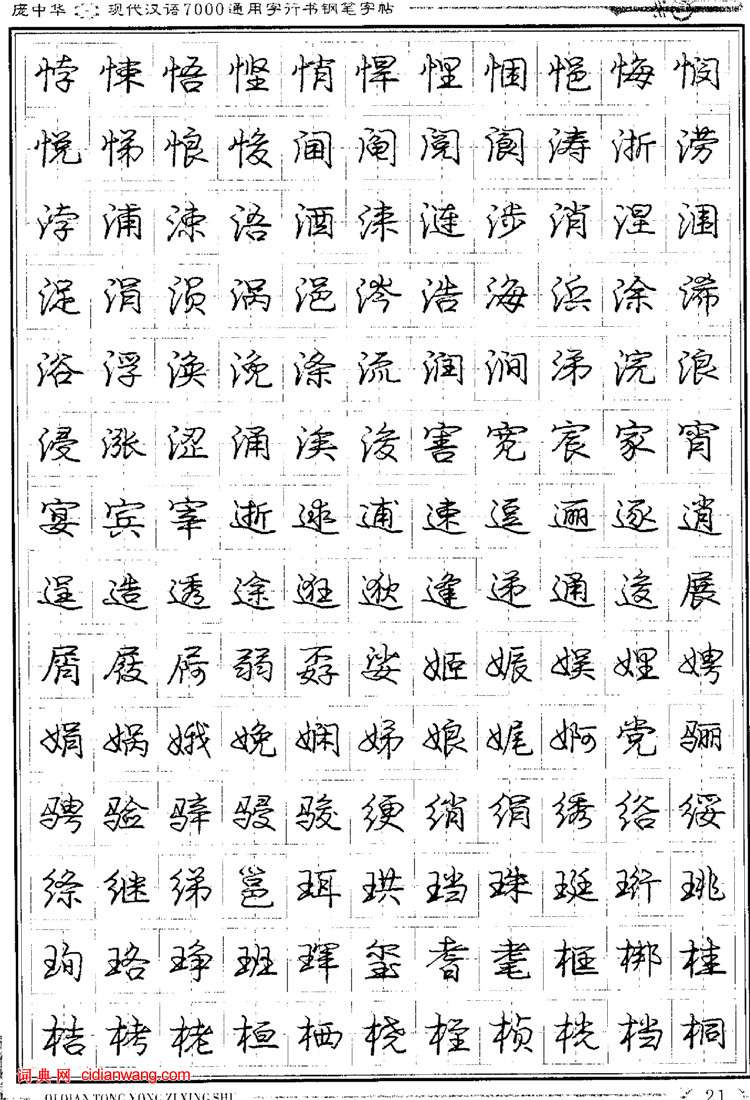 庞中华 现代汉语7000通用字行书钢笔字帖
悖悚悟悭悄悍悝悃悒悔悯
悦悌悢悛阃阄阅阆涛浙涝
浡浦涑浯酒涞涟涉消涅涠
浞涓涢涡浥涔浩海浜涂浠
浴浮涣浼涤流润涧涕浣浪
浸涨涩涌涘浚害宽宸家宵
宴宾宰逝逑逋速逗逦逐逍
逞造透途逛逖逢递通逡展
屑屐屙弱孬娑姬娠娱娌娉
娟娲娥娩娴娣娘娓婀党骊
骋验骍骎骏绠绡绢绣绤绥
绦继绨邕珥珙珰珠珽珩珧
珣珞琤班珲玺耆耄框梆桂
桔栲栳桓栖桡桎桢桄档桐
词典网 cidianwang.com
PANG ZHONGHUA
21